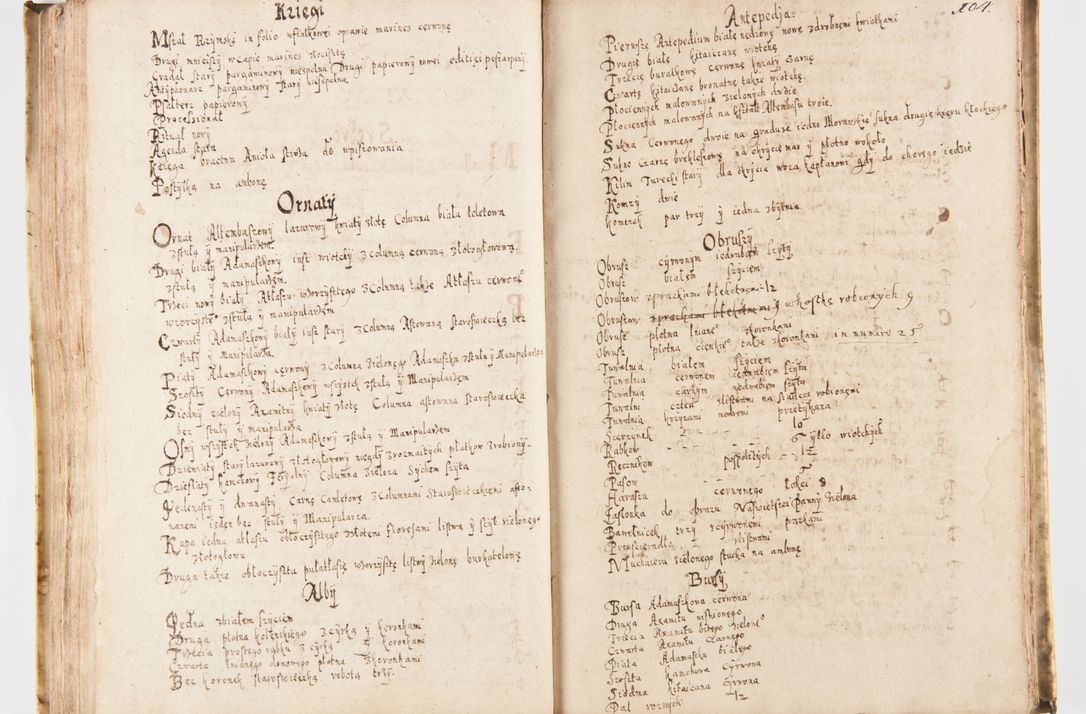 Kziegi
Mszał Rzymski in folio wsiatkowei oprawie marines cerwone
Drugi mnieiszy w capie marines złociste
Gradał stary pargaminowy niespełna Drugi papierowy nowei editiei
Antyphonarz pargaminowy stary niespełna
Psałterz papierowy
Processional
Rituał nowy
Agenda stara
Xięga bractwa Anioła stroża do wpisowania
Postyłka na ambonę
Ornaty
Ornat Altembaszowy lazurowy kwiaty złote Columna biała teletowa
z stułą y manipularzem
Drugi biały Adamaszkowy iust wiotchy z columną cerwoną złotogłowową
z stułą y manipularzem
Trzeci nowy biały Atłaszu worzystego z Columną także Atłaszu cerwonego
wzorzystego z stułą y manipularzem
Czwarty Adamaszkowy biały iusz stary z Columną Astowaną staroswiecką bez
stuły y Manipularza
Piąty Adamaszkowy cerwony z Columną zielonego Adamaszku z stułą y Manipularzem
Szosty Cerwony Adamaszkowy wszystek z stułą y Manipularzem
Siodmy zielony Axamitny kwiaty złote Columna astowana staroswiecka
bez stuły y manipularza
Osmy wszystek zielony Adamaszkowy z stułą y Manipularzem
Dziewiąty stary lazurowy złotogłowowy niegdy z rozmaitych płatkow zrobiony
Dziesiąty kamchowy Columna zielona Sychem szyta
Jedenasty y dwunasty Carne Camletowe z Columnami Staroswieckiemi asto-
wanemi ieden bez stuły y Manipularza
Kapa iedna atłasu obłoczystego złotem floresami listwa y szyt zielonego
złotogłowu
Druga także obłoczysta listwy zielone burkatelowe
Alby
Jedna z białem szyciem
Druga płotna kolenskiego z cyrką y koronkami
Trzecia prostego rąbku z cyrką y koronkami
Czwarta lnianego domowego płotna z koronkami
Bez koronek staroswiecką robotą trzy
104.
Antepedja
Pierwsze Antepedium białe nowe z drobnemi kwiatkami
Drugie białe kitaiczane wiotche
Trzecie burakowe cerwone kwiaty carne
Cwarte kitaiczane brunatne także wiotche
Płociennych malowanych zielonych dwoie
Płociennych malowanych na kształt Altembasu troie
Sukna Cerwonego dwoie na graduse iedno Morawskie sukna drugie kłockiego
Sukno Czarne na okrycie mar y płotno wokoło
Kilim Turecki stary dla okrycia woza Kapłanowi gdy do chorego iedzie
Komży dwie
Komerek par trzy y iedna zbytnia
Obrusy
Obrusz cyrwonym iedwabiem szyty
Obrus białem szyciem
Obrusow z prackami błekitnemi 12
Obrusow z prackami błekitnemi 9 w kostkę robionych 9
Obrus płotna lniane koronkami
Obrus płotna cienkiego także z koronkami in numero 25
Tuwalnia białem szyciem
Tuwalnia cerwonem iedwabiem szyta
Tuwalnia carnym iedwabiem szyta
Tuwalni cztery z listwami na siatce robionemi
Tuwalnia krzyżami nowemi przetykana
Szerzynek 10
Rąbkow 6 tyłko wiotchych
Ręcznikow pospolitych 12
Pasow 5
Harasu cerwonego łokci 8
Zasłonka do obrazu Naswietszei Panny zielona
Bawełnicek trzy z cyrwonemi prazkami
Przescieradlo z listwami
Muchaieru zielonego sztuka na ambonę
Bursy
Bursa Adamaszkowa cerwona
Druga Axamitu wisniowego
Trzecia Axamitu bitego zielonego
Czwarta Axamitu Czarnego
Piąta Adamasku białego
Szosta kamchowa cyrwona
Siodma kitaiczana cyrwona
Pal roznych 12